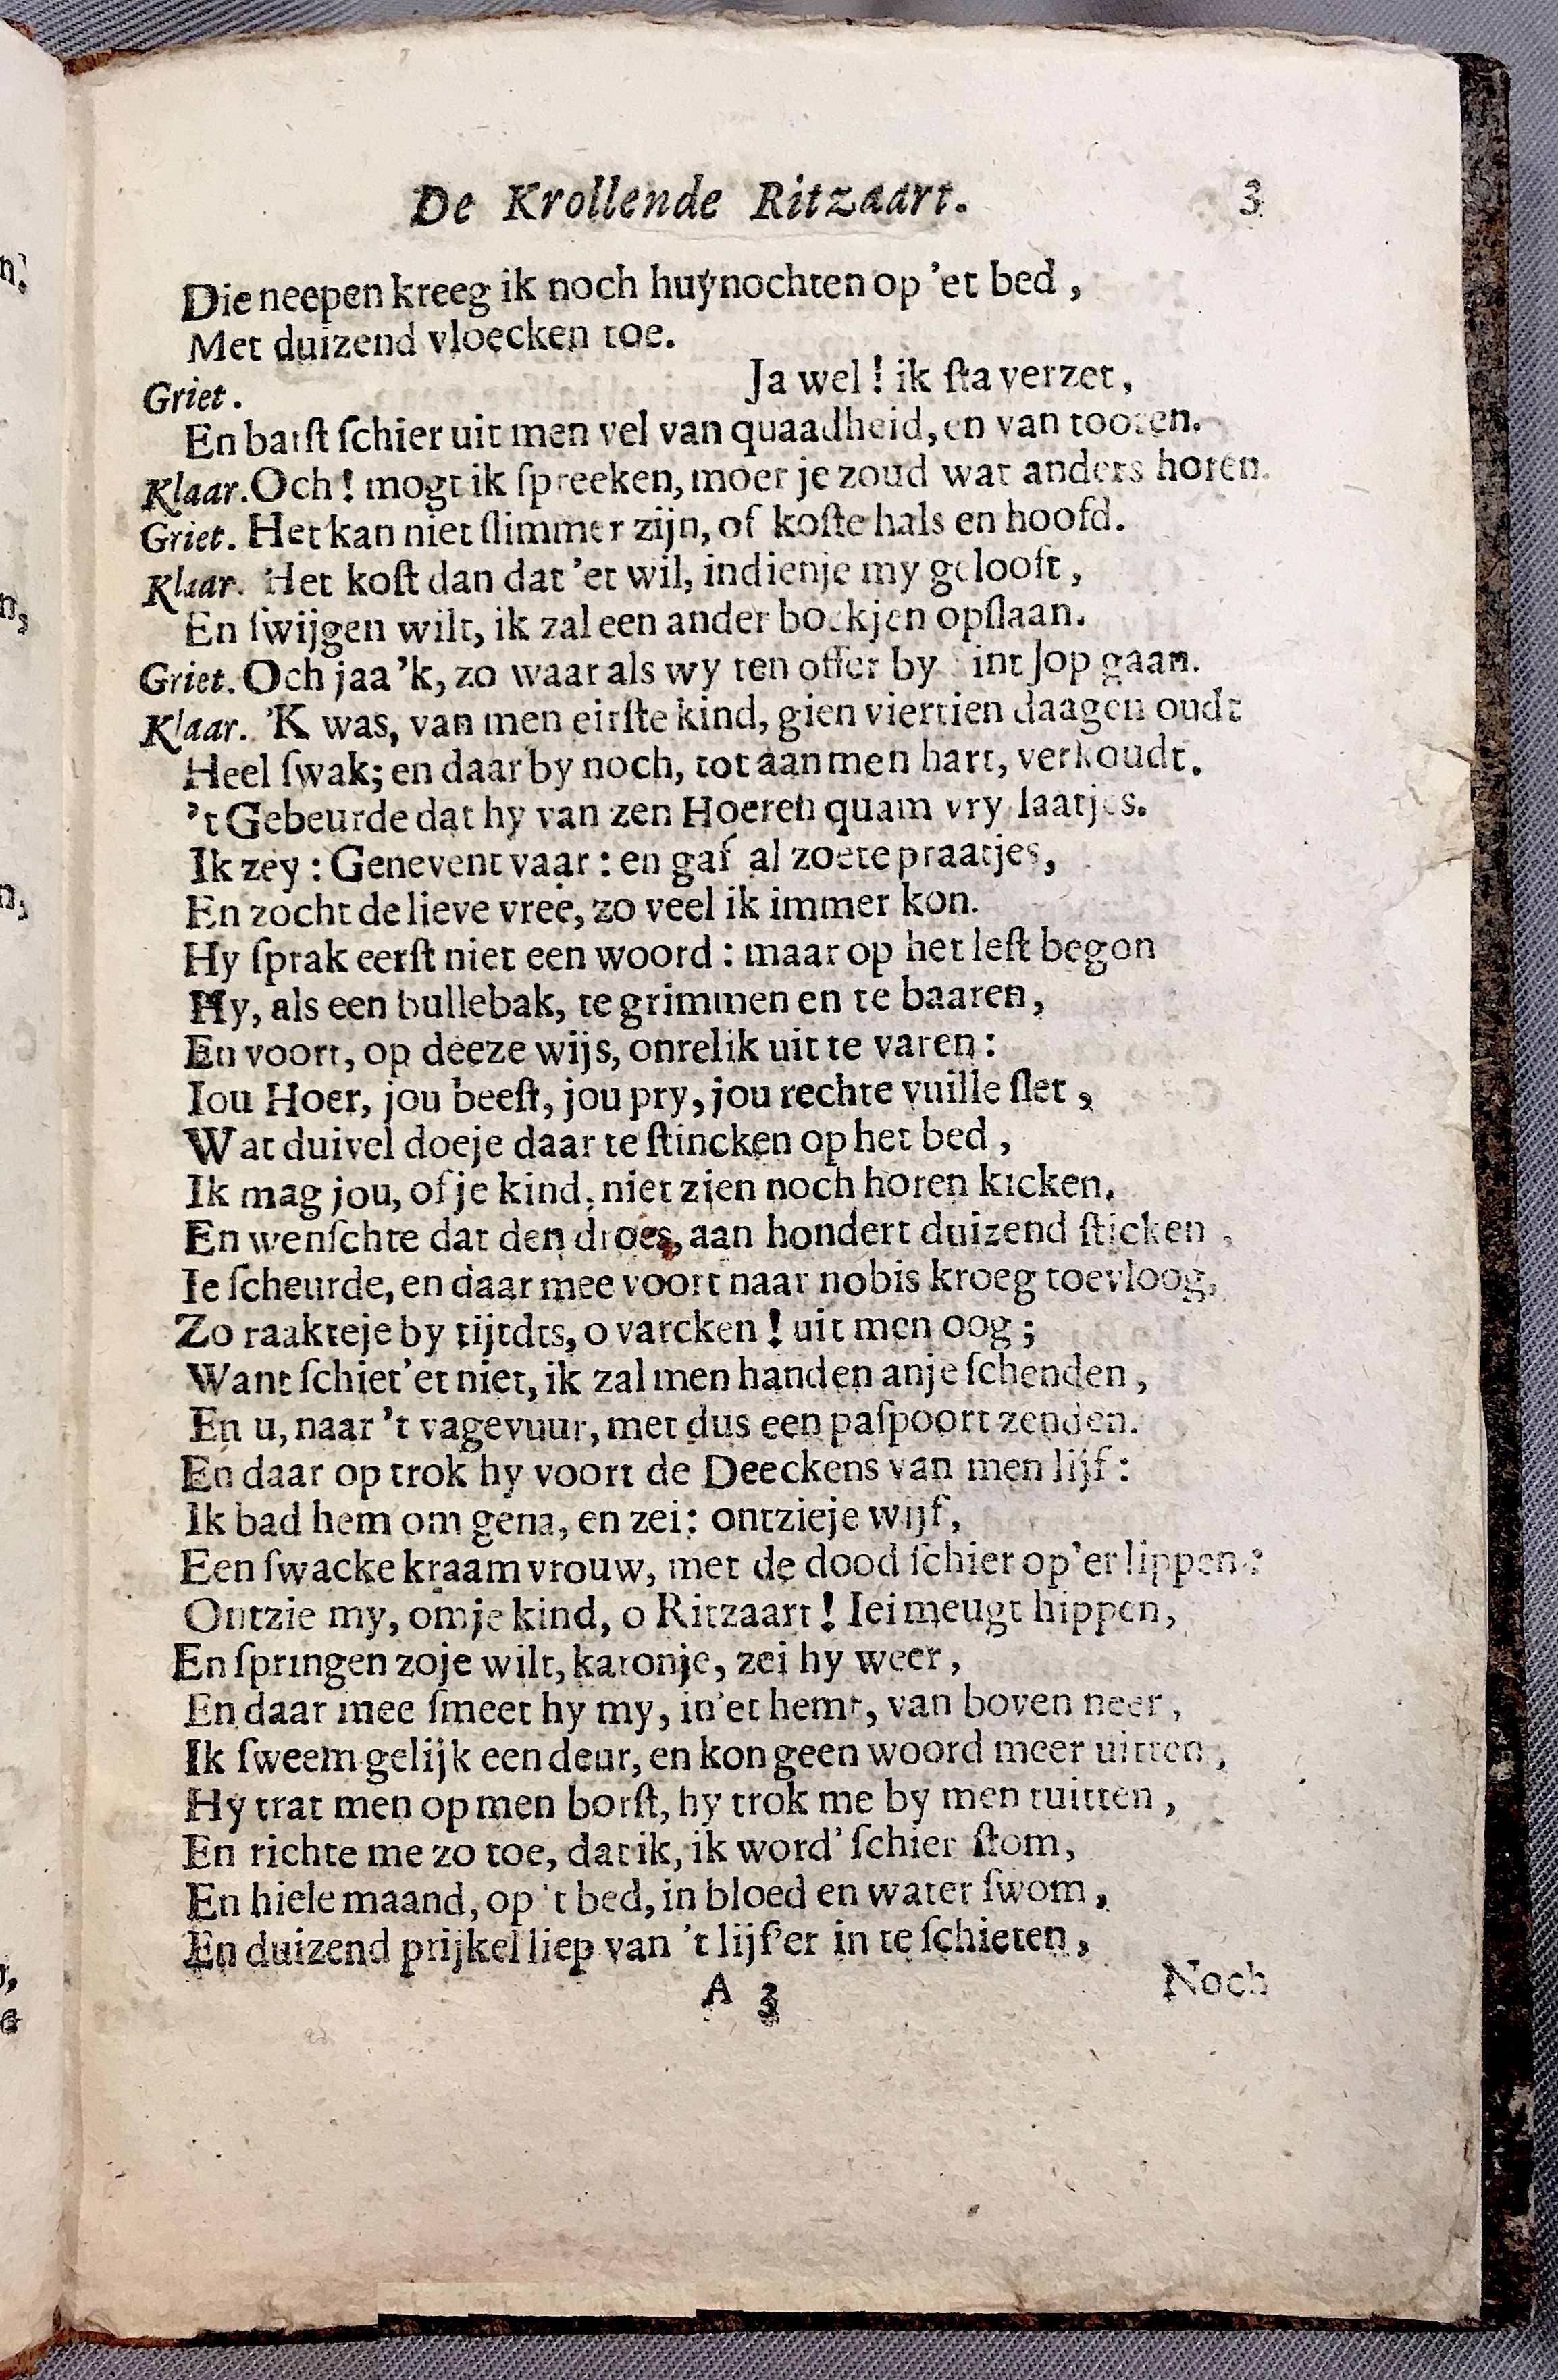 De Krollende Ritzaart. 3
Die neepen kreeg ik noch huÿnochten op 'et bed,
Met duizend vloecken toe.
Griet. Ja wel! ik ſta verzet,
En barſt ſchier uit men vel van quaadheid, en van tooren.
Klaar. Och! mogt ik ſpreeken, moer je zoud wat anders horen.
Griet. Het kan niet ſlimmer zijn, of koſte hals en hoofd.
Klaar. Het koſt dan dat 'et wil, indienje my gelooft,
En ſwijgen wilt, ik zal een ander boekjen opſlaan.
Griet. Och jaa 'k, zo waar als wy ten offer by Sint Jop gaan.
Klaar. 'K was, van men eirſte kind, gien viertien daagen oudt
Heel ſwak; en daar by noch, tot aan men hart, verkoudt.
't Gebeurde dat hy van zen Hoeren quam vry laatjes.
Ik zey: Genevent vaar: en gaf al zoete praatjes,
En zocht de lieve vree, zo veel ik immer kon.
Hy ſprak eerſt niet een woord: maar op het leſt begon
Hy, als een bullebak, te grimmen en te baaren,
En voort, op deeze wijs, onrelik uit te varen:
Iou Hoer, jou beeſt, jou pry, jou rechte vuille ſlet,
Wat duivel doeje daar te ſtincken op het bed,
Ik mag jou, of je kind, niet zien noch horen kicken,
En wenſchte dat den droes, aan hondert duizend ſticken,
Ie ſcheurde, en daar mee voort naar nobis kroeg toevloog,
Zo raakteje by tijtdts, o varcken! uit men oog;
Want ſchiet'et niet, ik zal men handen anje ſchenden,
En u, naar 't vagevuur, met dus een paſpoort zenden.
En daar op trok hy voort de Deeckens van men lijf:
Ik bad hem om gena, en zei: ontzieje wijf,
Een ſwacke kraamvrouw, met de dood ſchier op'er lippen:
Ontzie my, om je kind, o Ritzaart! Iei meugt hippen,
En ſpringen zoje wilt, karonje, zei hy weer,
En daar mee ſmeet hy my, in'et hemt, van boven neer,
Ik ſweem gelijk een deur, en kon geen woord meer uitten,
Hy trat men op men borſt, hy trok me by men tuitten,
En richte me zo toe, dat ik, ik word' ſchier ſtom,
En hiele maand, op 't bed, in bloed en water ſwom,
En duizend prijkel liep van 't lijf'er in te ſchieten,
A 3 Noch